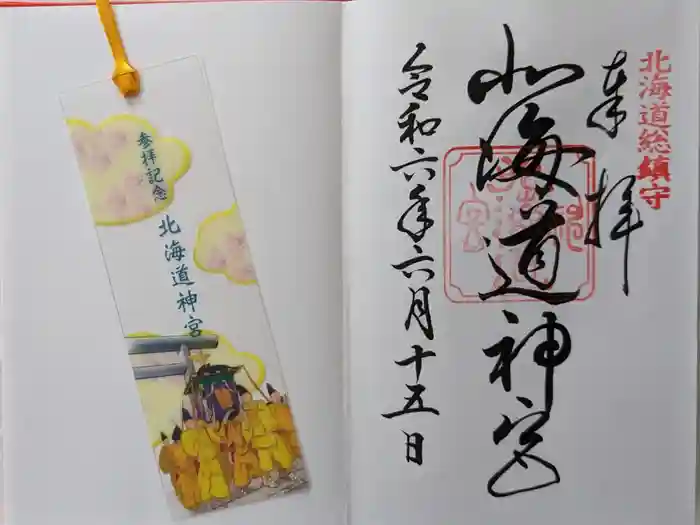 北海道総鎮守
奉拝
北海道神宮
令和六年六月十五日
参拝記念
北海道神宮